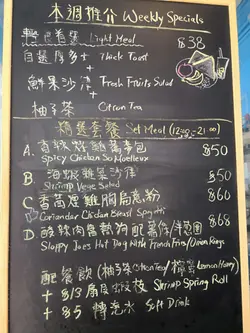 本週推介 Weekly Specials
輕 Light Meal $38
自選厚多士 Thick Toast
+
鮮果沙律 Fresh Fruits Salad
+
柚子茶 Citron Tea
精選套餐 Set Meal (12:00-21:00)
A. 香辣雞 包 $50
Spicy Chicken So Moelleux
B. 海蝦雜菜沙律 $50
Shrimp Vege Salad
C 香雞胸肉意粉 $60
Coriander Chicken Breast Spaghetti
D 熱狗配薯條/洋葱圈 $68
Sloppy Joes Hot Dog With French Fries/Onion Rings
配餐飲 (柚子茶 Citron Tea/ Lemon Honey)
+ $13 Shrimp Spring Roll
+ $5 轉汽水 Soft Drink